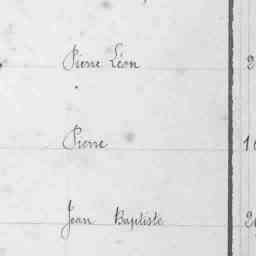 Pierre Léon 2
Pierre 1
Jean Baptiste 2